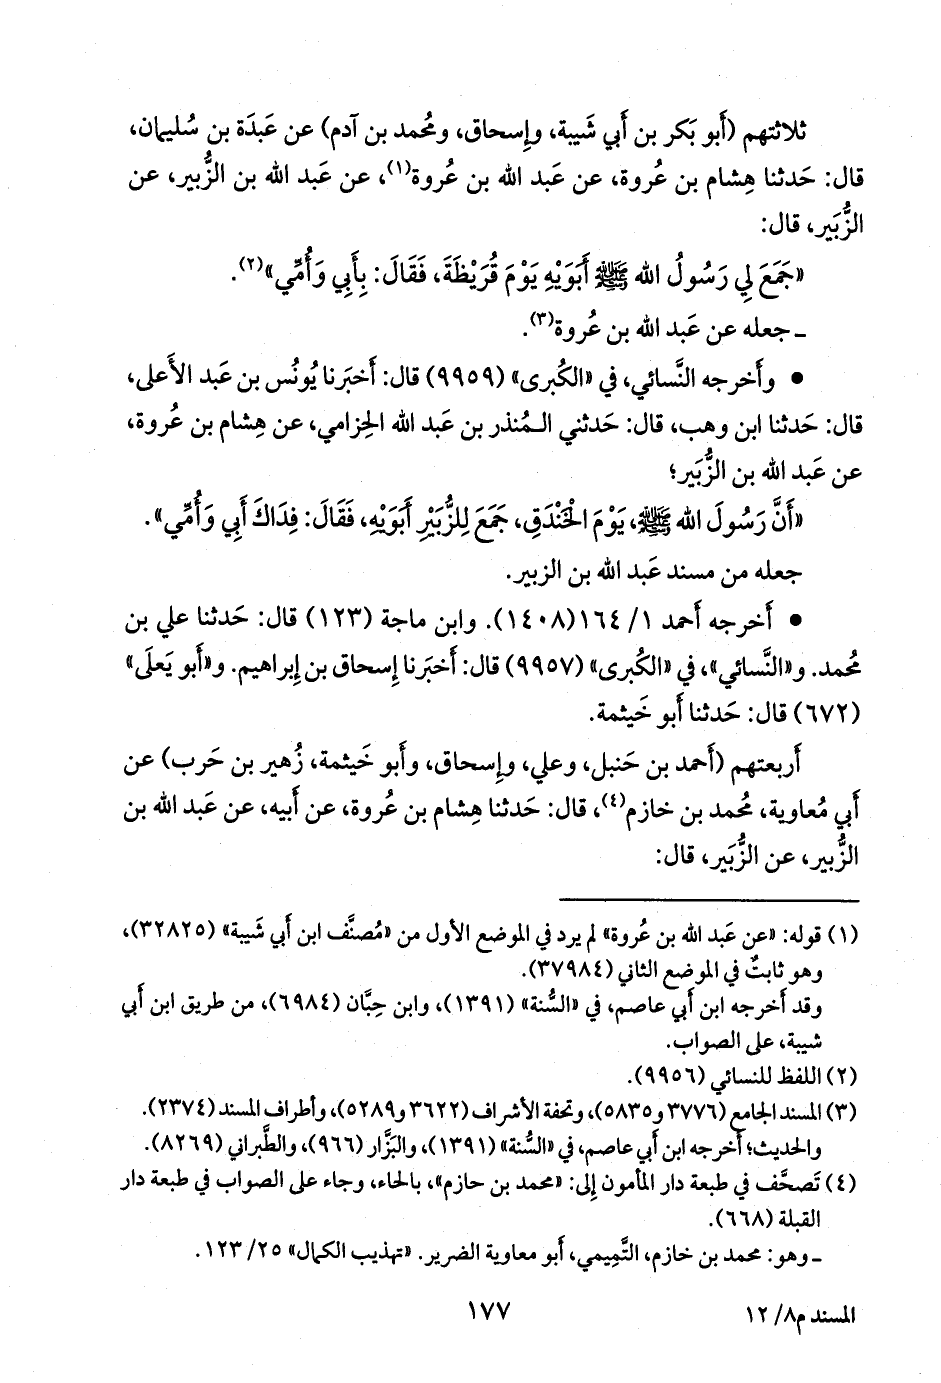 ثلاثتهم (أَبو بَكر بن أَبي شَيبة، وإِسحاق، ومُحمد بن آدم) عن عَبدَة بن سُليمان،
قال: حَدثنا هِشام بن عُروة، عن عَبد الله بن عُروة(١)، عن عَبد الله بن الزُّبير، عن
الزُّبَير، قال:
«جَمَعَ لِي رَسُولُ الله ﷺ أَبَوَيْهِ يَوْمَ قُرَيْظَةَ، فَقَالَ: بِأَبِي وَأُمِّي»(٢).
ـ جعله عن عَبد الله بن عُروة(٣).
• وأَخرجه النَّسائي، في «الكُبرى» (٩٩٥٩) قال: أَخبَرنا يُونُس بن عَبد الأَعلى،
قال: حَدثنا ابن وهب، قال: حَدثني الـمُنذر بن عَبد الله الحِزامي، عن هِشام بن عُروة،
عن عَبد الله بن الزُّبَير؛
«أَنَّ رَسُولَ الله ﷺ، يَوْمَ الخَنْدَقِ، جَمَعَ لِلزُّبَيْرِ أَبَوَيْهِ، فَقَالَ: فِدَاكَ أَبِي وَأُمِّي».
جعله من مسند عَبد الله بن الزبير.
• أَخرجه أَحمد ١/ ١٦٤(١٤٠٨). وابن ماجة (١٢٣) قال: حَدثنا علي بن
مُحمد. و«النَّسائي»، في «الكُبرى» (٩٩٥٧) قال: أَخبَرنا إِسحاق بن إِبراهيم. و«أَبو يَعلَى»
(٦٧٢) قال: حَدثنا أَبو خَيثمة.
أَربعتهم (أَحمد بن حَنبل، وعلي، وإِسحاق، وأَبو خَيثمة، زُهير بن حَرب) عن
أَبي مُعاوية، مُحمد بن خازم(٤)، قال: حَدثنا هِشام بن عُروة، عن أَبيه، عن عَبد الله بن
الزُّبير، عن الزُّبَير، قال:
(١) قوله: «عن عَبد الله بن عُروة» لم يرد في الموضع الأول من «مُصنَّف ابن أَبي شَيبة» (٣٢٨٢٥)،
وهو ثابتٌ في الموضع الثاني (٣٧٩٨٤).
وقد أَخرجه ابن أَبي عاصم، في «السُّنة» (١٣٩١)، وابن حِبَّان (٦٩٨٤)، من طريق ابن أَبي
شيبة، على الصواب.
(٢) اللفظ للنسائي (٩٩٥٦).
(٣) المسند الجامع (٣٧٧٦ و٥٨٣٥)، وتحفة الأشراف (٣٦٢٢ و٥٢٨٩)، وأطراف المسند (٢٣٧٤).
والحديث؛ أَخرجه ابن أَبي عاصم، في «السُّنة» (١٣٩١)، والبَزَّار (٩٦٦)، والطَّبراني (٨٢٦٩).
(٤) تَصحَّف في طبعة دار المأمون إلى: «محمد بن حازم»، بالحاء، وجاء على الصواب في طبعة دار
القبلة (٦٦٨).
ـ وهو: محمد بن خازم، التَّمِيمي، أَبو معاوية الضرير. «تهذيب الكمال» ٢٥/ ١٢٣.
المسند م٨/ ١٢
١٧٧